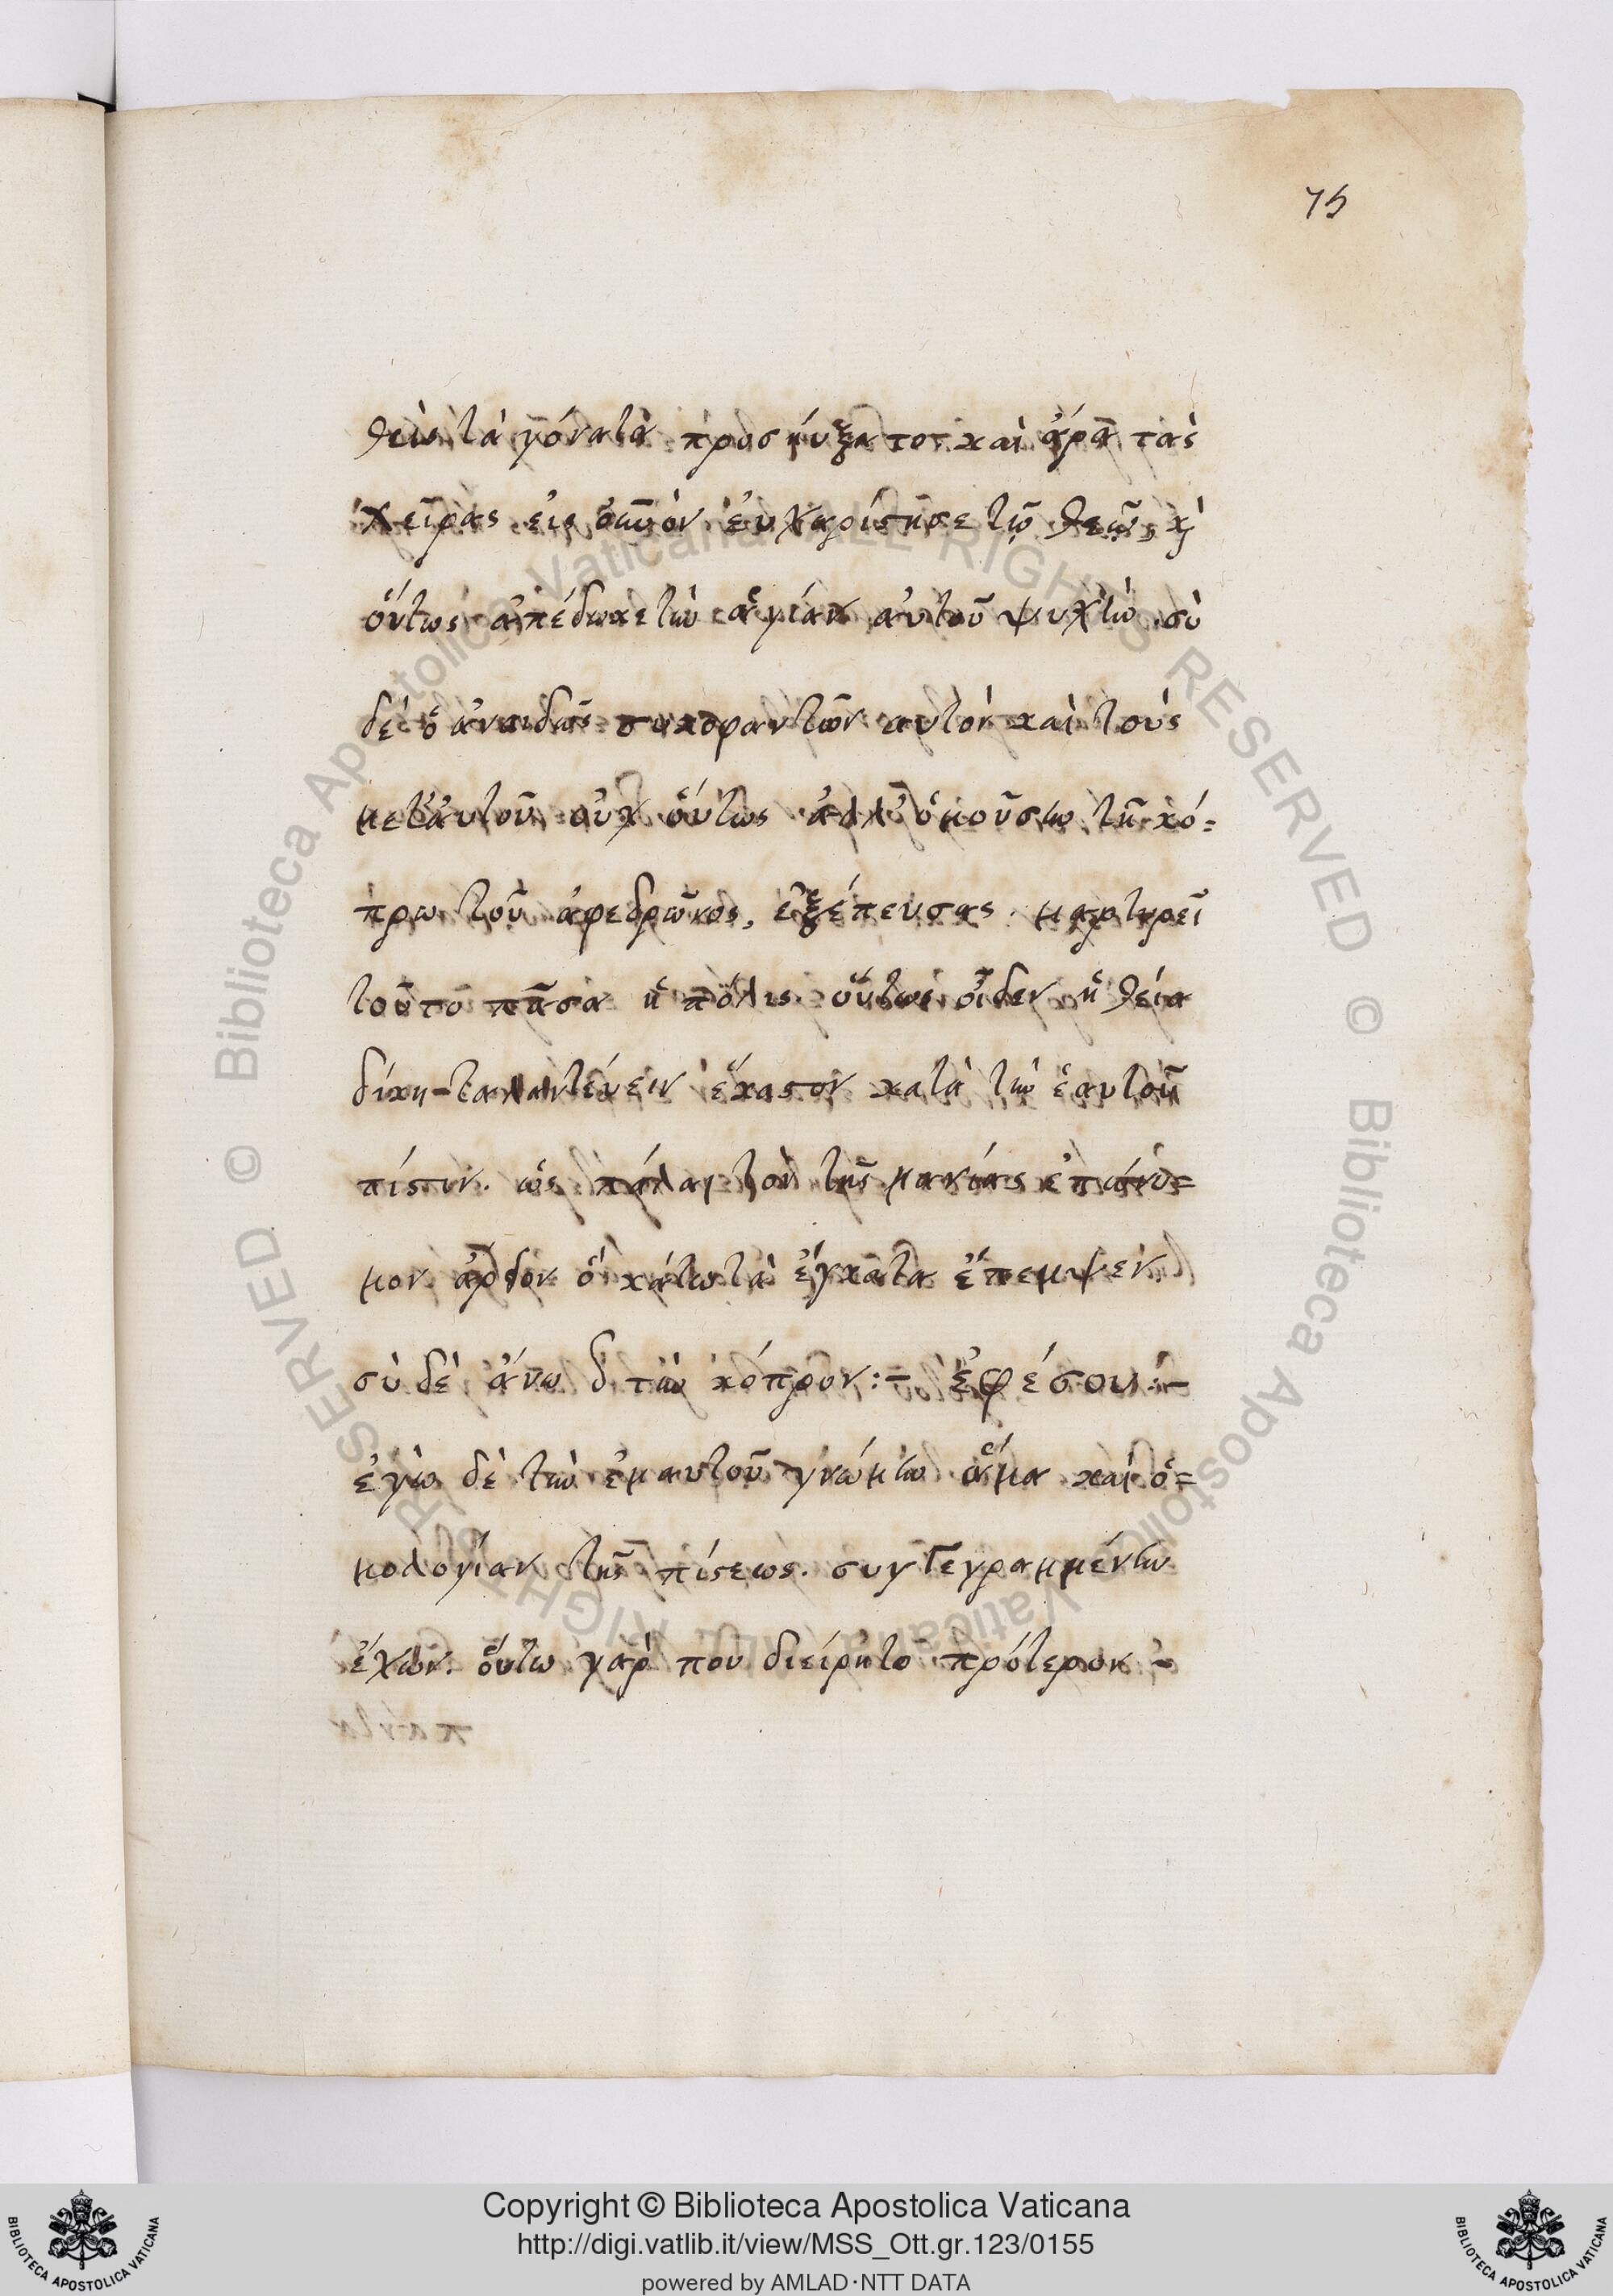 75
θεὶς τὰ γόνατα προσηύξατο· καὶ ἄρας τὰς
χεῖρας εἰς οὐνὸν ἐυχαρίστησε τῷ θεῷ, κὶ
οὕτως ἀπέδωκε τὴν ἁγίαν αὐτοῦ ψυχὴν· σὺ
δὲ ὁ ἀναιδῶς συκοφαντῶν αὐτὸν καὶ τοὺς
μετ' αὐτοῦ οὐχ οὕτως ἀλλ' ὁμοῦ σὺν τῇ κό=
πρω τοῦ ἀφεδρῶνος, ἐξέπευσας· μαρτυρεῖ
τοῦτο πᾶσα ἡ πόλις· οὕτως οἶδεν ἡ θεία
δίκη ταλαντεύειν ἕκαστον κατὰ τὴν ἑαυτοῦ
πίστιν· ὡς πάλαι τὸν τῆς μανίας ἐπώνυ=
μον ἄρειον ὁ κάτω τὰ ἔγκατα ἔπεμψεν
σὺ δὲ ἄνω τὴν κόπρον:- ἐφέσου:-
ἐγὼ δὲ τὴν ἐμαυτοῦ γνώμην ἅμα καὶ ὁ=
μολογίαν τῆς πίστεως· συγγεγραμμένην
ἔχων· οὕτω γάρ που διείρητο πρότερον -
Copyright © Biblioteca Apostolica Vaticana
http://digi.vatlib.it/view/MSS_Ott.gr.123/0155
powered by AMLAD·NTT DATA